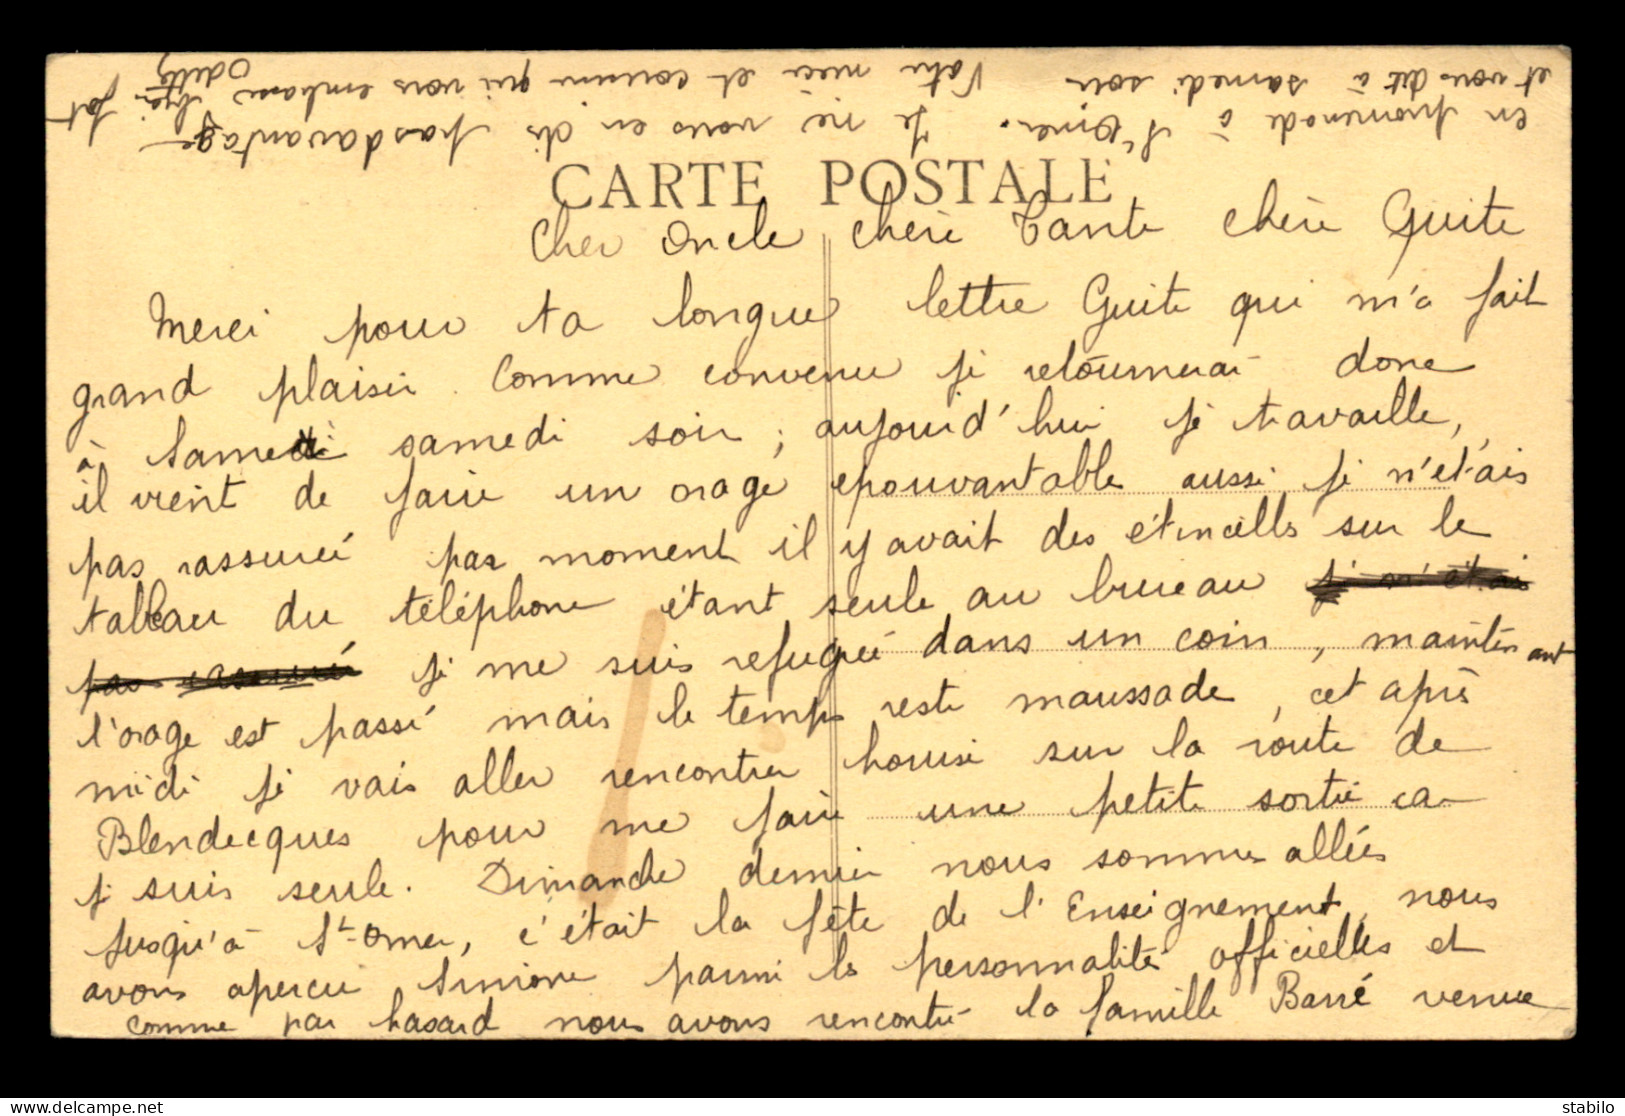 CARTE POSTALE
Cher Oncle chère Tante chère Guite
Merci pour ta longue lettre Guite qui m'a fait
grand plaisir. Comme convenu je retournerai donc
à samedi soir ; aujourd'hui je travaille,
il vient de faire un orage epouvantable aussi je n'etais
pas rassurée par moment il y avait des étincelles sur le
tableau du téléphone étant seule au bureau je n'étais
pas rassurée je me suis refugiée dans un coin, maintenant
l'orage est passé mais le temps reste maussade, cet après
midi je vais aller rencontrer sur la route de
Blendecques pour me faire une petite sortie car
je suis seule. Dimanche dernier nous sommes allées
jusqu'à St-Omer, c'était la fête de l'Enseignement, nous
avons aperçu Simone parmi les personnalités officielles et
comme par hasard nous avons rencontré la famille Barré venue
en promenade à St Omer. Je ne vous en dis pas davantage
et vous dit à samedi soir Votre nièce et cousine qui vous embrasse bien fort
Odette
stabilo